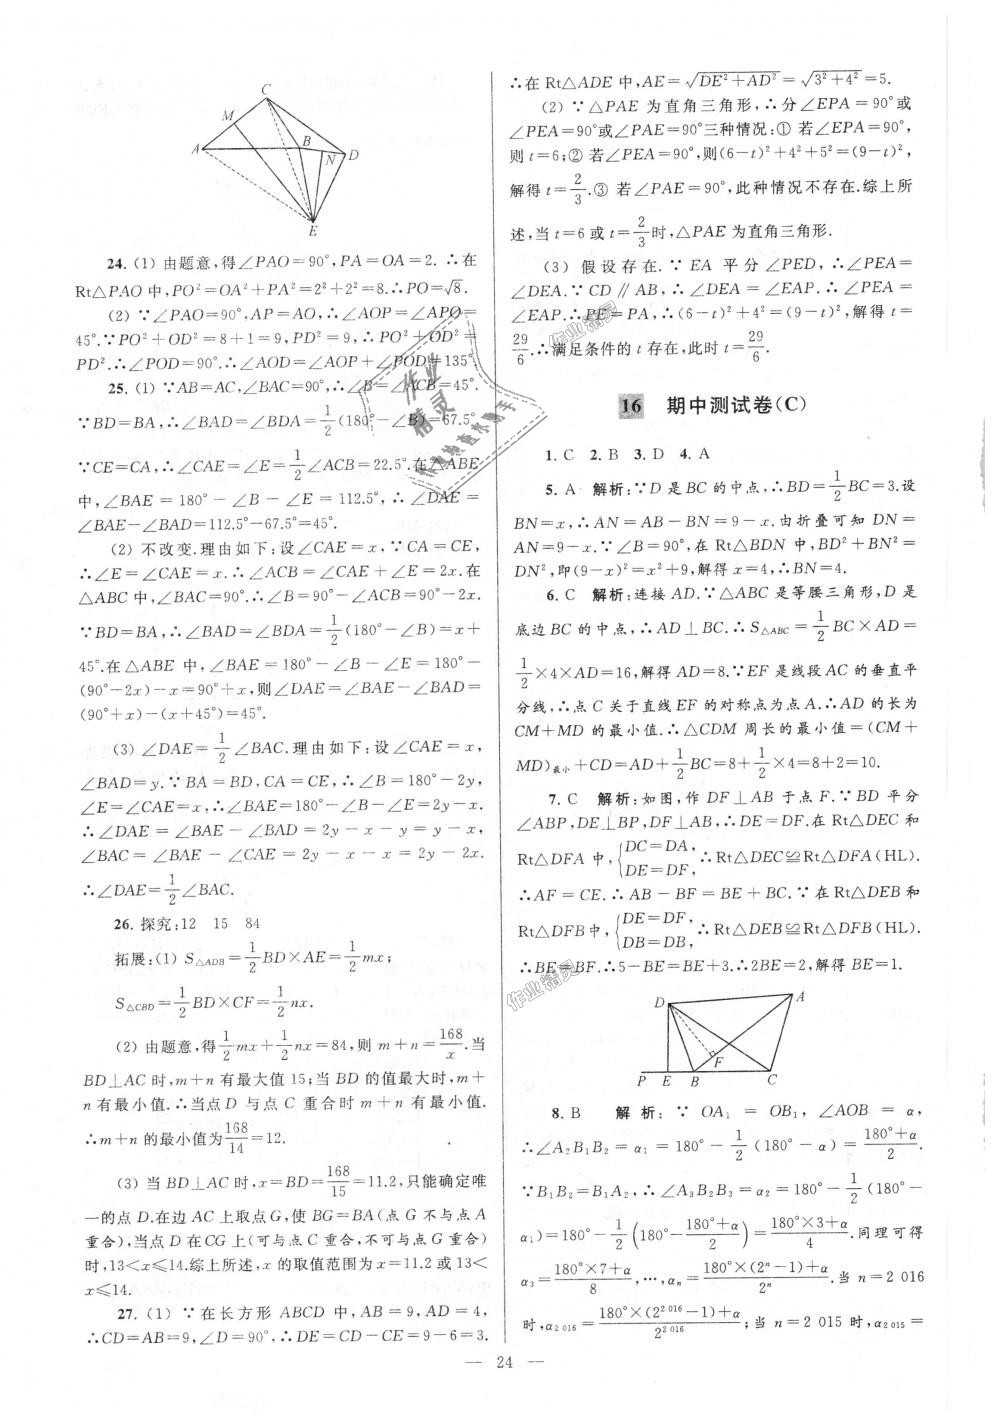 C
M
A
B
N
D
E
24. (1) 由题意,得∠PAO=90°,PA=OA=2. ∴在
Rt△PAO中,PO²=OA²+PA²=2²+2²=8.∴PO=√8.
(2) ∵∠PAO=90°,AP=AO,∴∠AOP=∠APO=
45°.∵PO²+OD²=8+1=9,PD²=9,∴PO²+OD²=
PD².∴∠POD=90°.∴∠AOD=∠AOP+∠POD=135°.
25. (1) ∵AB=AC,∠BAC=90°,∴∠B=∠ACB=45°.
∵BD=BA,∴∠BAD=∠BDA=1/2(180°-∠B)=67.5°.
∵CE=CA,∴∠CAE=∠E=1/2∠ACB=22.5°.在△ABE
中,∠BAE=180°-∠B-∠E=112.5°,∴∠DAE=
∠BAE-∠BAD=112.5°-67.5°=45°.
(2) 不改变.理由如下:设∠CAE=x,∵CA=CE,
∴∠E=∠CAE=x.∴∠ACB=∠CAE+∠E=2x.在
△ABC中,∠BAC=90°.∴∠B=90°-∠ACB=90°-2x.
∵BD=BA,∴∠BAD=∠BDA=1/2(180°-∠B)=x+
45°.在△ABE中,∠BAE=180°-∠B-∠E=180°-
(90°-2x)-x=90°+x,则∠DAE=∠BAE-∠BAD=
(90°+x)-(x+45°)=45°.
(3) ∠DAE=1/2∠BAC.理由如下:设∠CAE=x,
∠BAD=y.∵BA=BD,CA=CE,∴∠B=180°-2y,
∠E=∠CAE=x,∴∠BAE=180°-∠B-∠E=2y-x.
∴∠DAE=∠BAE-∠BAD=2y-x-y=y-x,
∠BAC=∠BAE-∠CAE=2y-x-x=2y-2x.
∴∠DAE=1/2∠BAC.
26. 探究:12 15 84
拓展:(1) S△ADB=1/2BD×AE=1/2mx;
S△CBD=1/2BD×CF=1/2nx.
(2) 由题意,得1/2mx+1/2nx=84,则m+n=168/x.当
BD⊥AC时,m+n有最大值15;当BD的值最大时,m+
n有最小值.∴当点D与点C重合时m+n有最小值.
∴m+n的最小值为168/14=12.
(3) 当BD⊥AC时,x=BD=168/15=11.2,只能确定唯
一的点D.在边AC上取点G,使BG=BA(点G不与点A
重合),当点D在CG上(可与点C重合,不可与点G重合)
时,13<x≤14.综上所述,x的取值范围为x=11.2或13<
x≤14.
27. (1) ∵在长方形ABCD中,AB=9,AD=4,
∴CD=AB=9,∠D=90°.∴DE=CD-CE=9-6=3.
∴在Rt△ADE中,AE=√(DE²+AD²)=√(3²+4²)=5.
(2) ∵△PAE为直角三角形,∴分∠EPA=90°或
∠PEA=90°或∠PAE=90°三种情况:① 若∠EPA=90°,
则t=6;② 若∠PEA=90°,则(6-t)²+4²+5²=(9-t)²,
解得t=2/3.③ 若∠PAE=90°,此种情况不存在.综上所
述,当t=6或t=2/3时,△PAE为直角三角形.
(3) 假设存在.∵EA平分∠PED,∴∠PEA=
∠DEA.∵CD∥AB,∴∠DEA=∠EAP.∴∠PEA=
∠EAP.∴PE=PA,∴(6-t)²+4²=(9-t)²,解得t=
29/6.∴满足条件的t存在,此时t=29/6.
16 期中测试卷(C)
1. C 2. B 3. D 4. A
5. A 解析:∵D是BC的中点,∴BD=1/2BC=3.设
BN=x,∴AN=AB-BN=9-x.由折叠可知DN=
AN=9-x.∵∠B=90°,在Rt△BDN中,BD²+BN²=
DN²,即(9-x)²=x²+9,解得x=4,∴BN=4.
6. C 解析:连接AD.∵△ABC是等腰三角形,D是
底边BC的中点,∴AD⊥BC.∴S△ABC=1/2BC×AD=
1/2×4×AD=16,解得AD=8.∵EF是线段AC的垂直平
分线,∴点C关于直线EF的对称点为点A.∴AD的长为
CM+MD的最小值.∴△CDM周长的最小值=(CM+
MD)最小+CD=AD+1/2BC=8+1/2×4=8+2=10.
7. C 解析:如图,作DF⊥AB于点F.∵BD平分
∠ABP,DE⊥BP,DF⊥AB,∴DE=DF.在Rt△DEC和
Rt△DFA中,{DC=DA, DE=DF, ∴Rt△DEC≌Rt△DFA(HL).
∴AF=CE.∴AB-BF=BE+BC.∵在Rt△DEB和
Rt△DFB中,{DE=DF, DB=DB, ∴Rt△DEB≌Rt△DFB(HL).
∴BE=BF.∴5-BE=BE+3.∴2BE=2,解得BE=1.
D
A
F
P
E
B
C
8. B 解析:∵OA₁=OB₁,∠AOB=α,
∴∠A₂B₁B₂=α₁=180°-1/2(180°-α)=(180°+α)/2.
∵B₁B₂=B₁A₂,∴∠A₃B₂B₃=α₂=180°-1/2(180°-
α₁)=180°-1/2(180°-(180°+α)/2)=(180°×3+α)/4.同理可得
α₃=(180°×7+α)/8,…,αₙ=(180°×(2ⁿ-1)+α)/2ⁿ.当n=2 016
时,α₂ ₀₁₆=(180°×(2² ⁰¹⁶-1)+α)/2² ⁰¹⁶;当n=2 015时,α₂ ₀₁₅=
— 24 —
作业精灵
作业精灵
作业
精灵